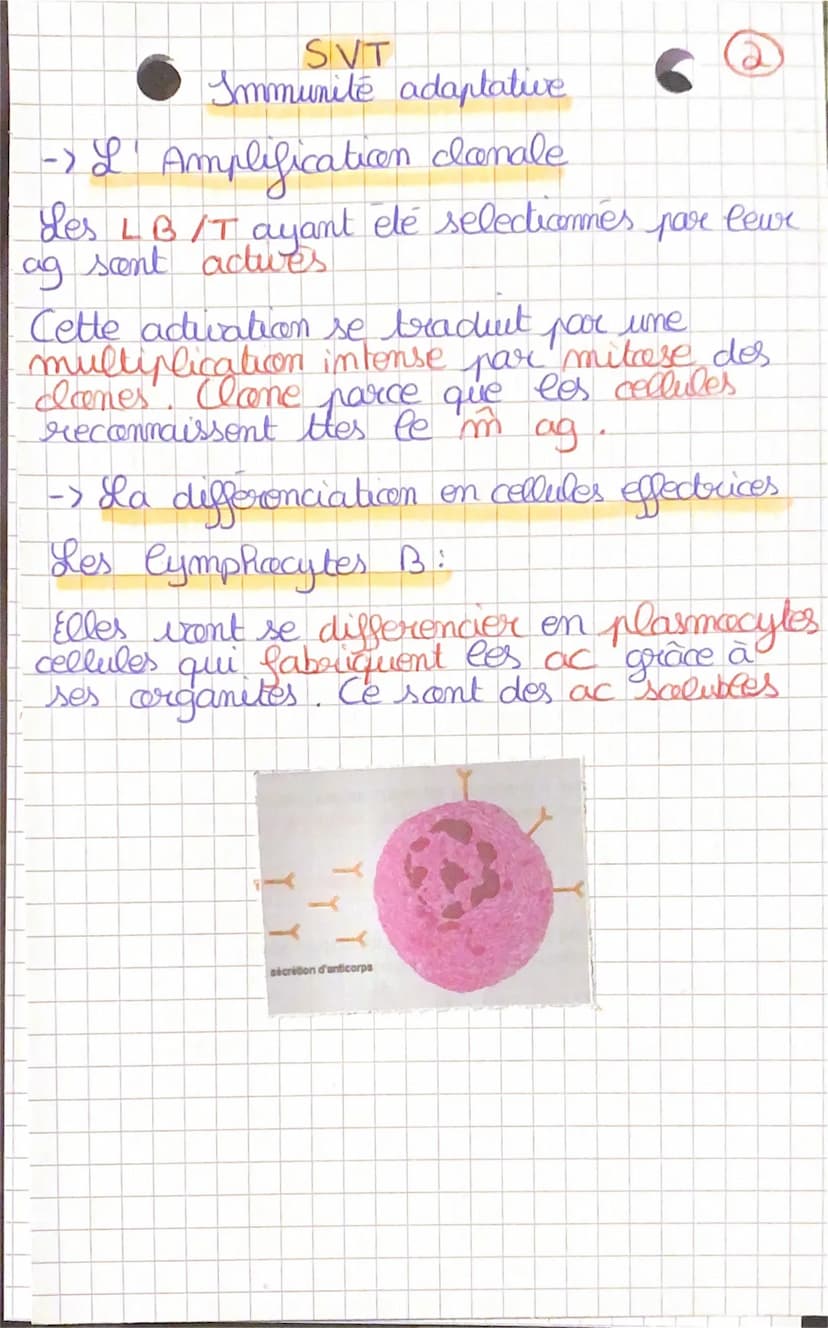 SVT
2
Immunité adaptative
-> L'Amplification clonale
Les LB/T ayant été selectionnés par leur
ag sont activés
Cette activation se traduit par une
multiplication intense par mitose des
clones. Clone parce que les cellules
reconnaissent ttes le m̂ ag.
-> La différenciation en cellules effectrices
Les lymphocytes B :
Elles vont se differencier en plasmocytes
cellules qui fabriquent les ac grâce à
ses organites. Ce sont des ac solubles
sécrétion d'anticorps